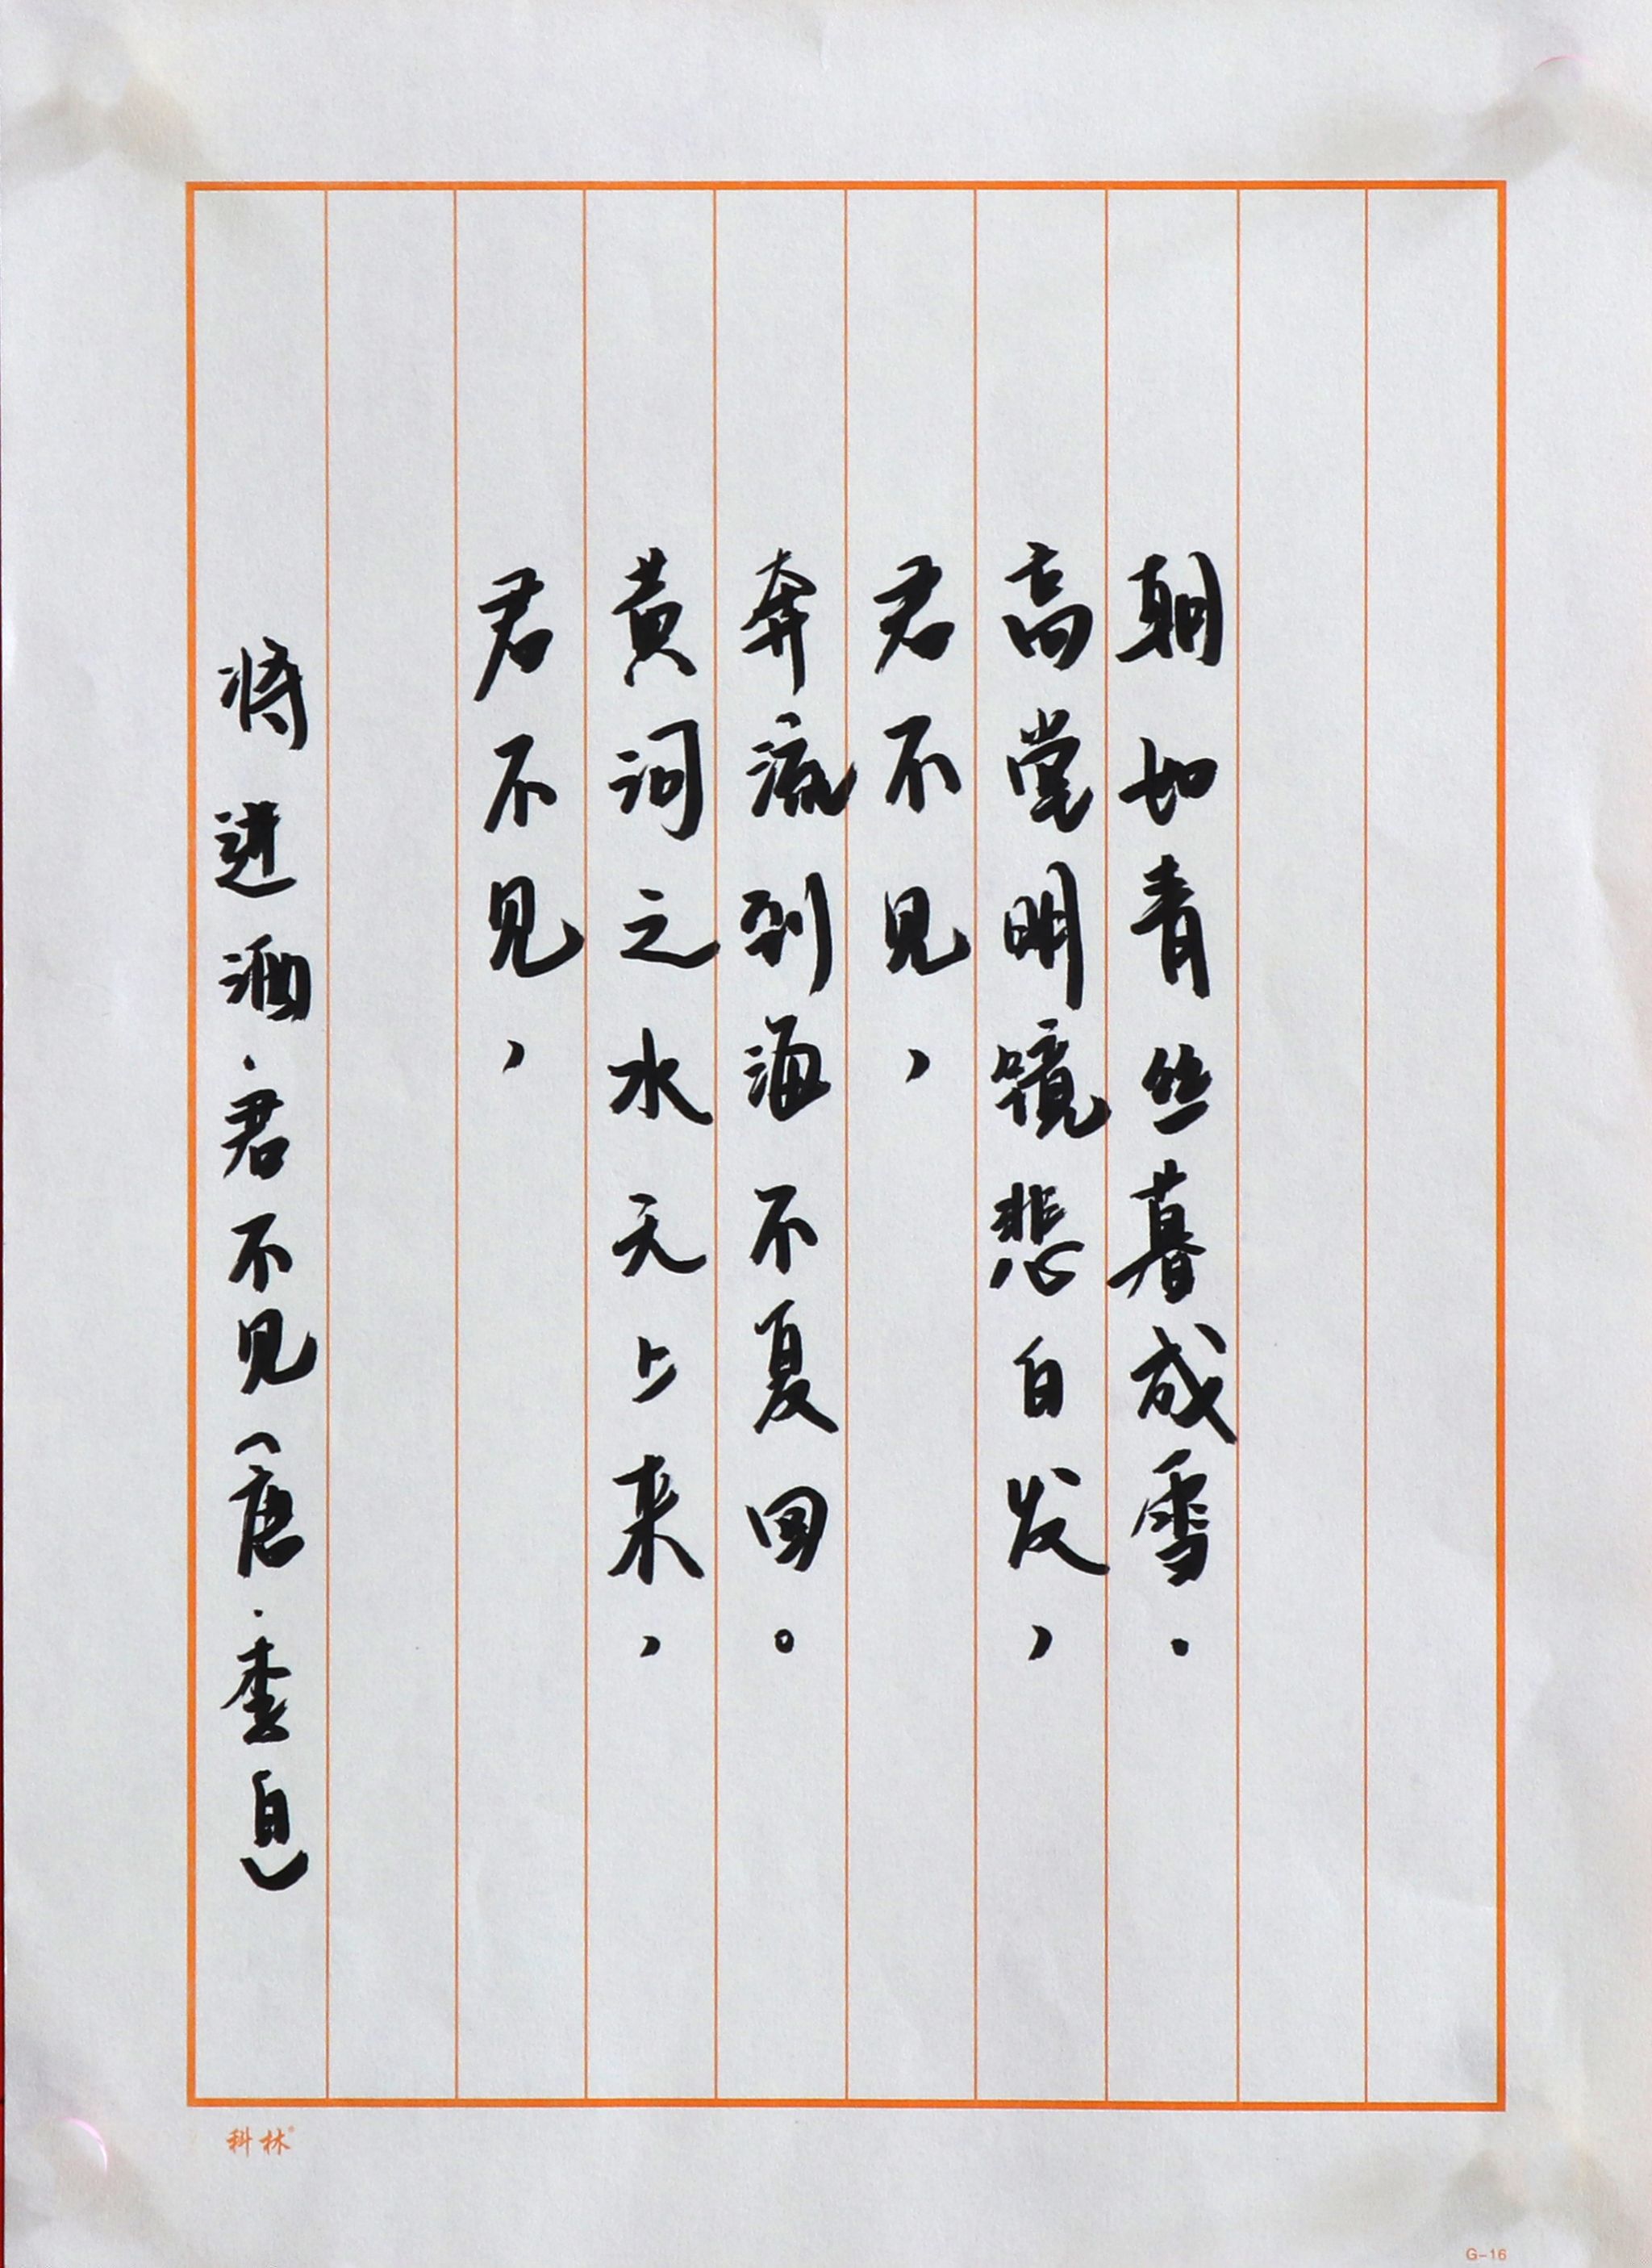 将进酒·君不见（唐·李白）
君不见，
黄河之水天上来，
奔流到海不复回。
君不见，
高堂明镜悲白发，
朝如青丝暮成雪.
科林®
G-16